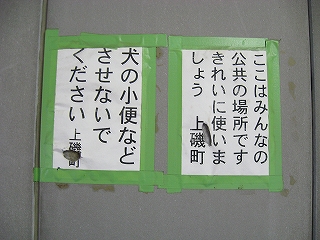 ここはみんなの
公共の場所です
きれいに使いま
しょう　上磯町
犬の小便など
させないで
ください　上磯町